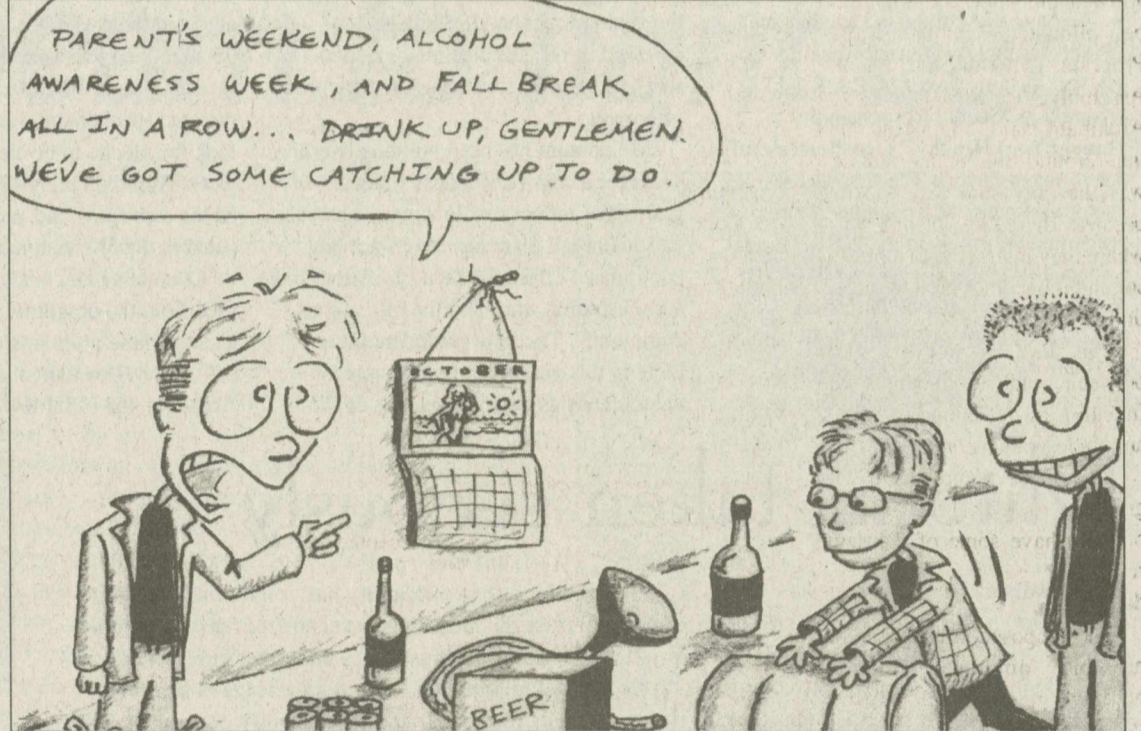 PARENT'S WEEKEND, ALCOHOL
AWARENESS WEEK AND FALL BREAK
ALL IN A ROW... DRINK UP, GENTLEMEN.
WE'VE GOT SOME CATCHING UP TO DO.
OCTOBER
have some of
BEER